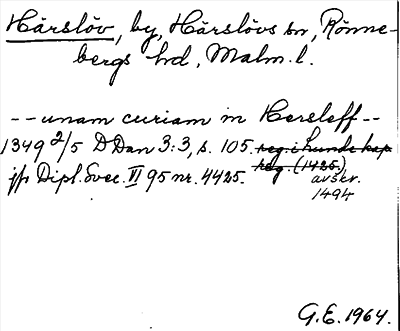 Hårslöv, by, Hårslövs sn, Rönne-
bergs hd, Malm. l.
-- unam curiam in Hersleff --
1349 2/5 DDan 3:3, s. 105. reg. i Lunde kap
reg. (1425)
jfr Dipl. Svec. VI 95 nr. 4425.
avskr.
1494
G.E. 1964.